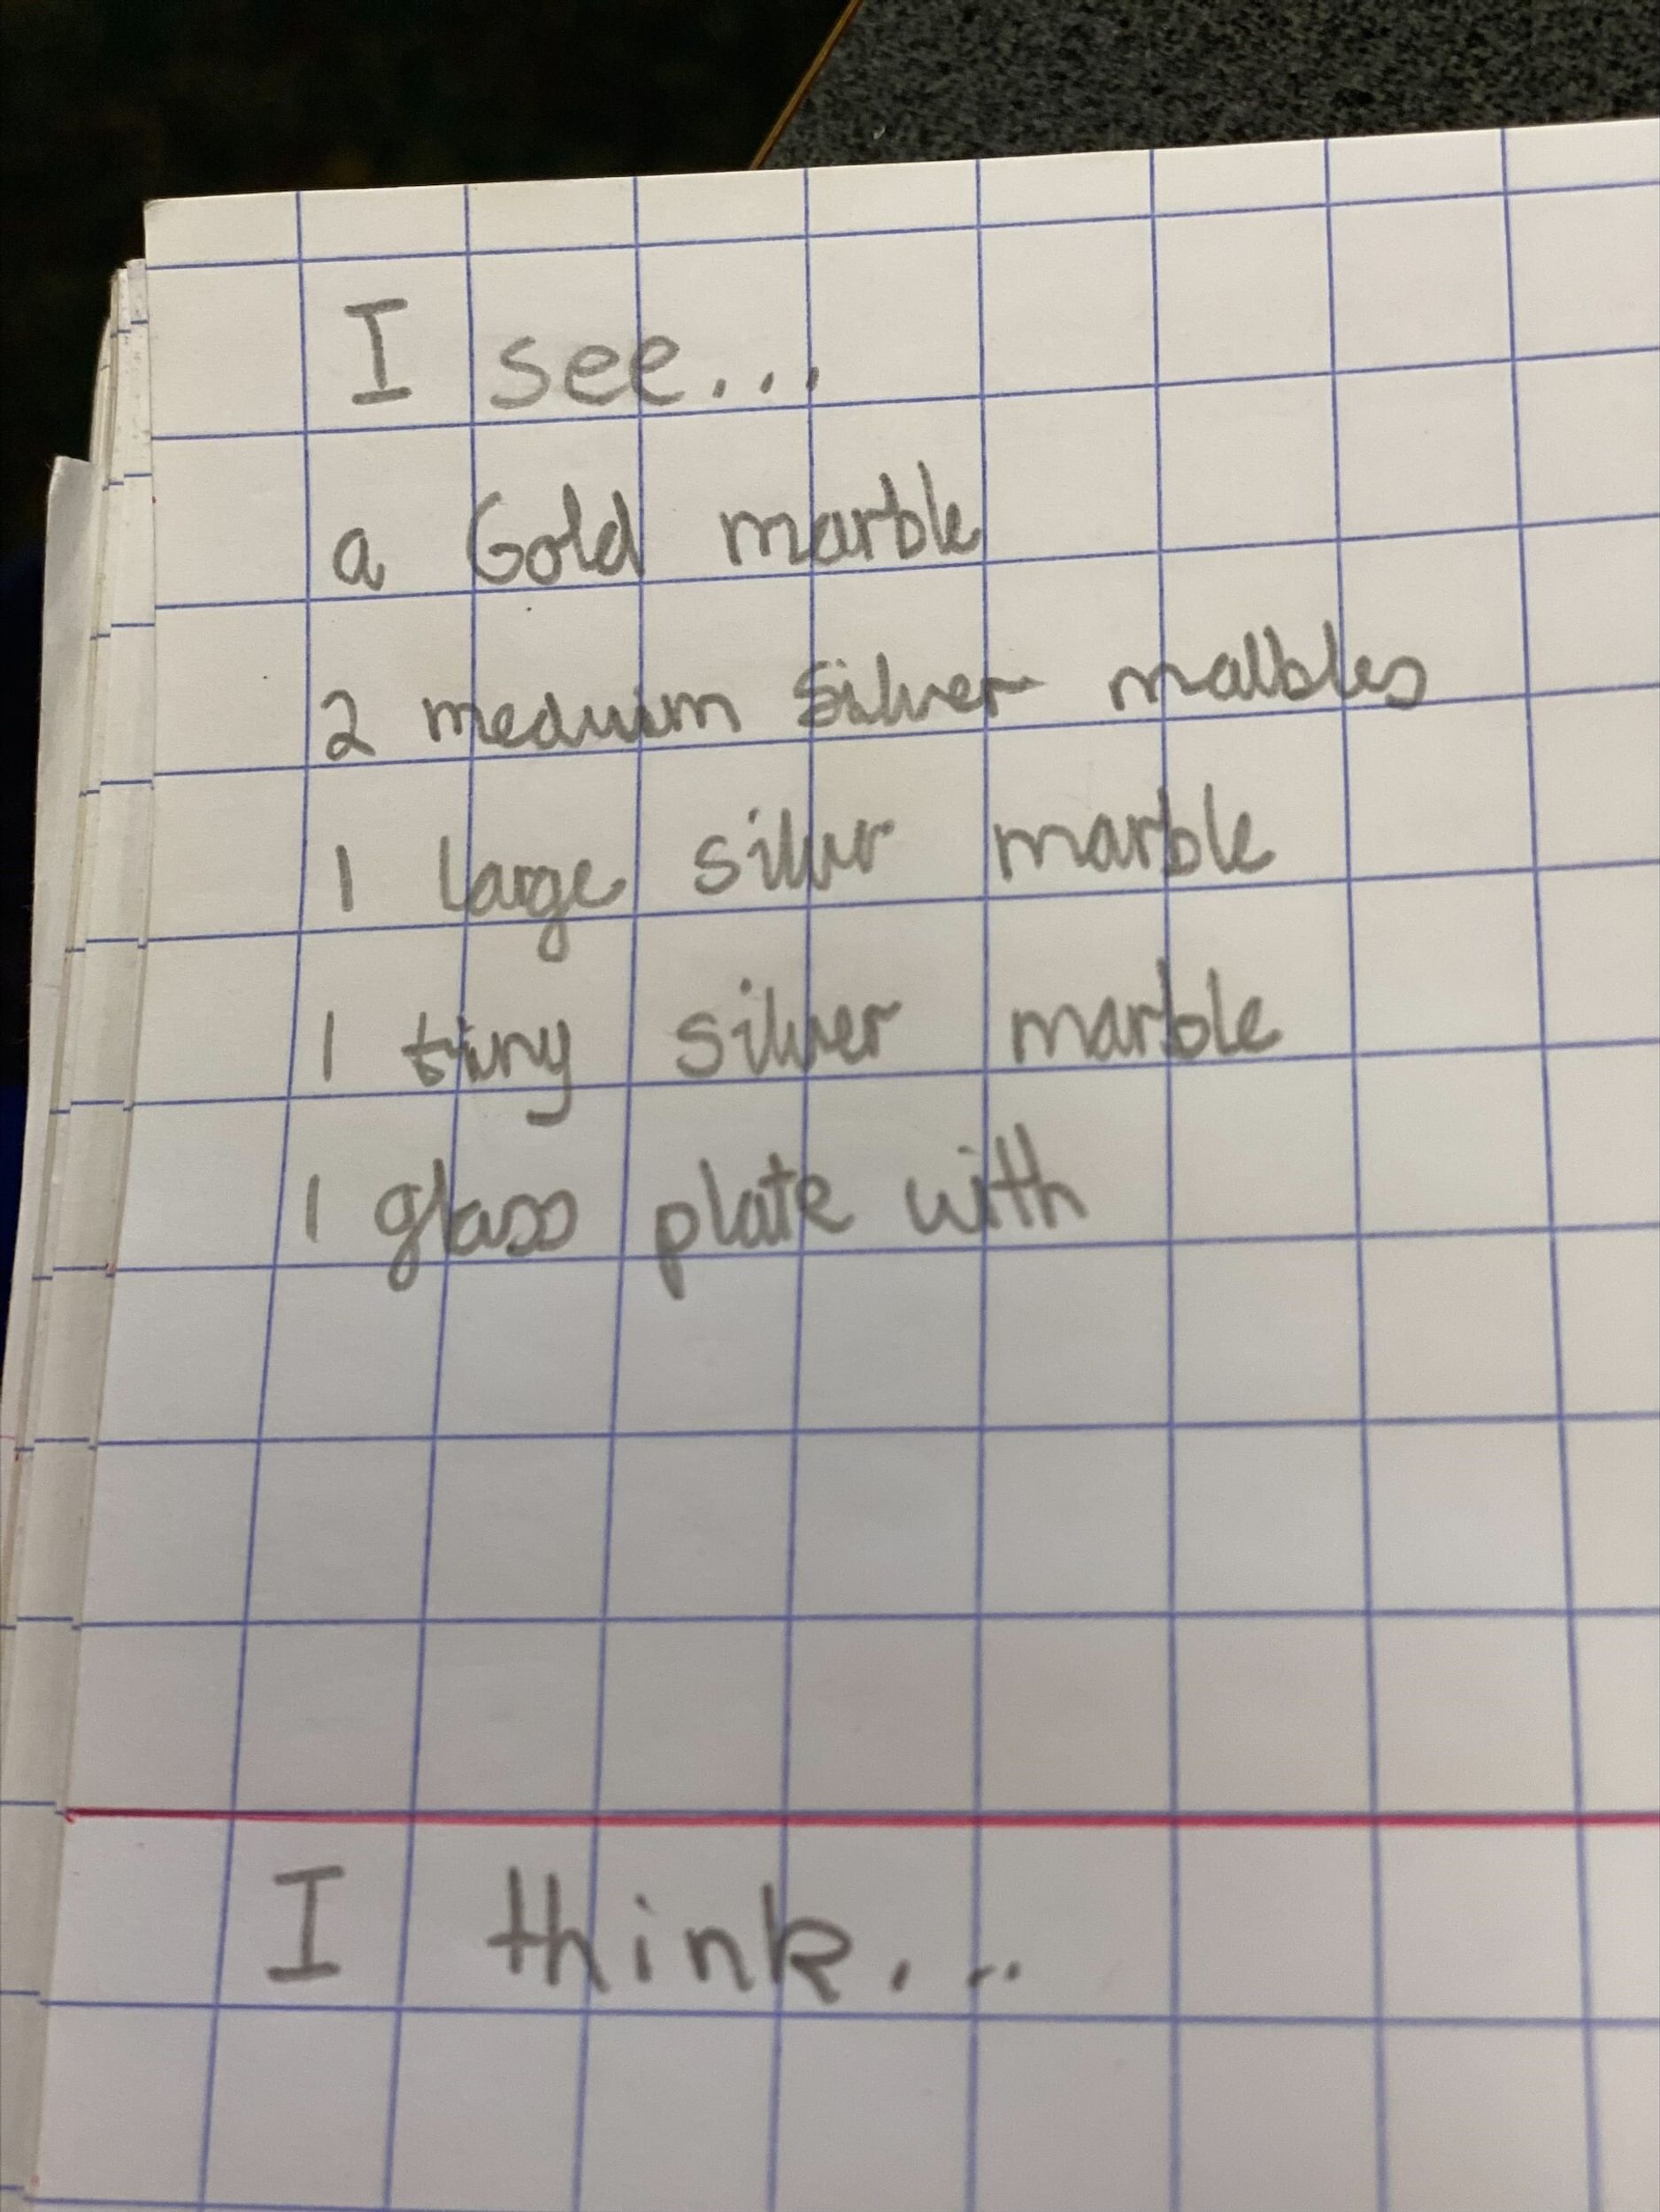 I see...
a Gold marble
2 meduim silver malbles
1 large silver marble
1 tiny silver marble
1 glass plate with
I think...